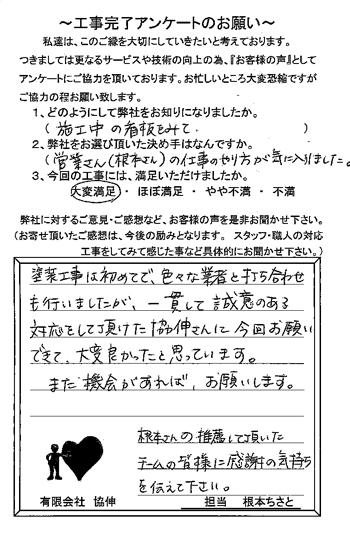 ～工事完了アンケートのお願い～
私達は、このご縁を大切にしていきたいと考えております。
つきましては更なるサービスや技術の向上の為、『お客様の声』として
アンケートにご協力を頂いております。お忙しいところ大変恐縮ですが
ご協力の程お願い致します。
1、どのようにして弊社をお知りになりましたか。
（ 施工中の看板をみて. ）
2、弊社をお選び頂いた決め手はなんですか。
（営業さん(根本さん)の仕事のやり方が気に入りました。
3、今回の工事には、満足いただけましたか。
大変満足 ・ ほぼ満足 ・ やや不満 ・ 不満
弊社に対するご意見・ご感想など、お客様の声を是非お聞かせ下さい。
（お寄せ頂いたご感想は、今後の励みとなります。 スタッフ・職人の対応
工事をしてみて感じた事など具体的にお聞かせ下さい。）
塗装工事は初めてで、色々な業者と打ち合わせ
も行いましたが、一貫して誠意のある
対応をして頂けた協伸さんに今回お願い
できて、大変良かったと思っています。
また機会があれば、お願いします。
根本さんの推薦して頂いた
チームの皆様に感謝の気持ち
を伝えて下さい。
有限会社 協伸
担当 根本ちさと